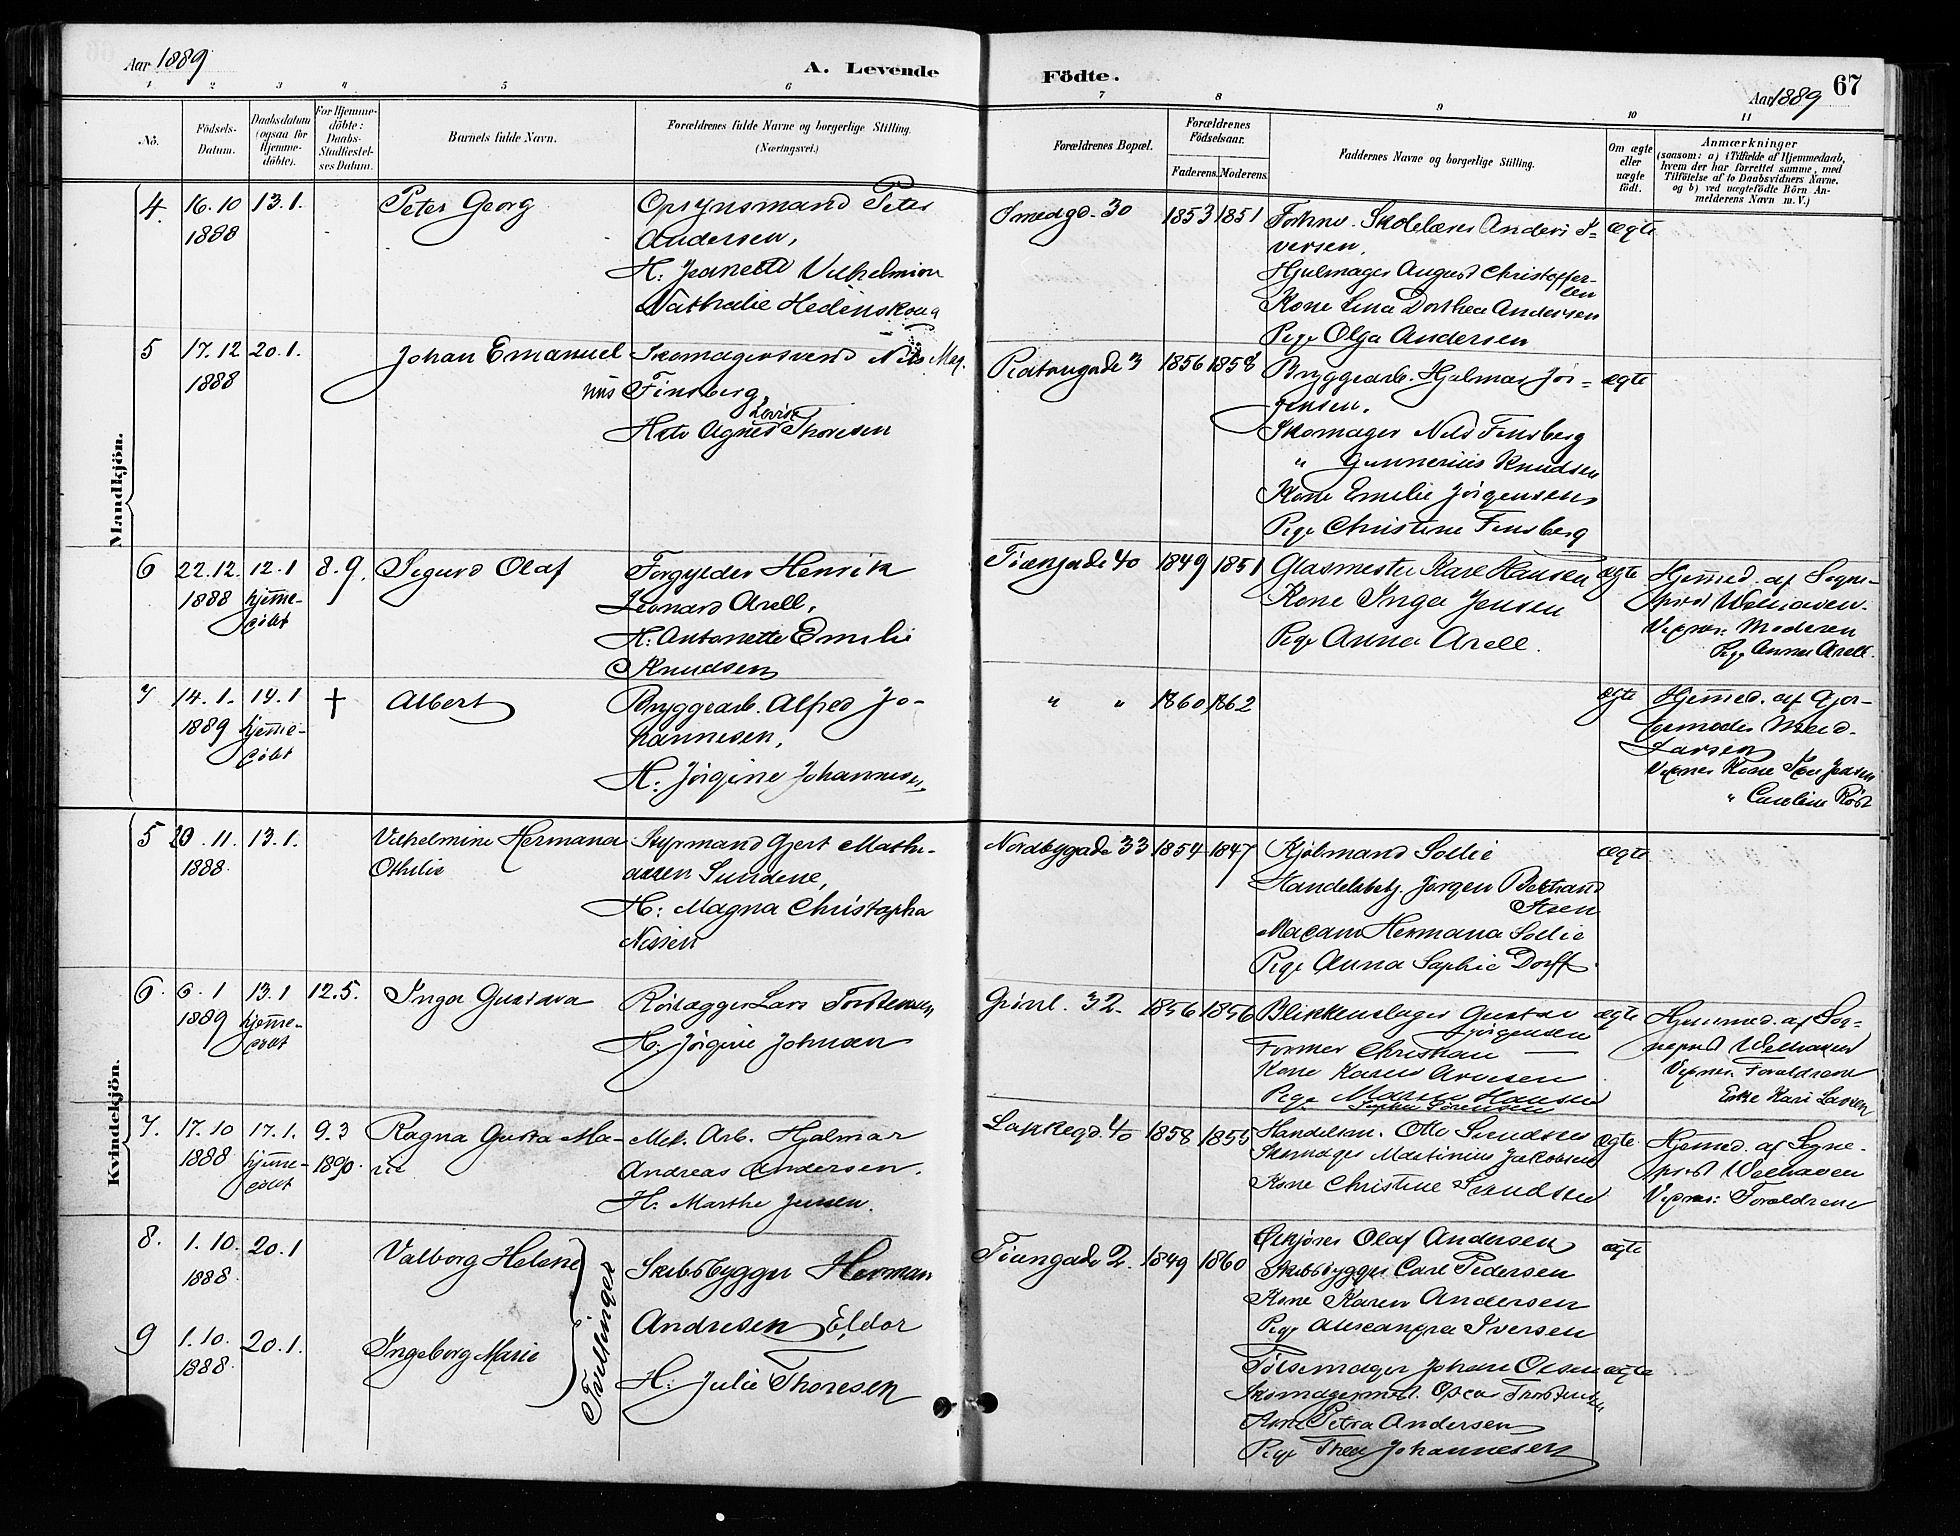 Aar 1889
A. Levende Födte.
67
Aar 1889
1 2 3 4 5 6 7 8 9 10 11
No.
Födsels-Datum.
Daabsdatum (ogsaa for Hjemme-döbte).
For Hjemme-döbte: Daabs-Stadfæstel-ses Datum.
Barnets fulde Navn.
Forældrenes fulde Navne og borgerlige Stilling. (Næringsvei.)
Forældrenes Bopæl.
Forældrenes Födselsaar.
Faderens. Moderens.
Faddernes Navne og borgerlige Stilling.
Om ægte eller uægte födt.
Anmærkninger
(saasom: a) i Tilfælde af Hjemmedaab,
hvem der har forrettet samme, med
Tilföielse af to Daabsvidners Navne,
og b) ved uægtefödte Börn An-
melderens Navn m. V.)
Mandkjön.
4. 16.10 1888 13.1. Peter Georg
Opsynsmand Peter
Andersen,
H: Jeanette Vilhelmine
Nathalie Hedenskoug
Smedgd. 30 1853 1851
Skolelærer Anders I-
versen,
Hjulmager August Christoffer-
sen
Kone Lina Dorthea Andersen
Pige Olga Andersen
ægte
5 17.12 1888 20.1. Johan Emanuel
Skomagersvend Nils Mag-
nus Finsberg,
Hstr Agnes Lovise Thoresen
Platougade 3 1856 1858
Bryggearb. Hjalmar Jör-
gensen.
Skomager Nils Finsberg
" Gunnerius Knudsen
Kone Emilie Jörgensen
Pige Christine Finsberg
ægte
6 22.12. 1888 12.1 hjemme-döbt 8.9. Sigurd Olaf
Forgylder Henrik
Leonard Arell,
H: Antonette Emilie
Knudsen
Töiengade 40 1849 1851
Glasmester Karl Hansen
Kone Inga Jensen
Pige Anna Arell.
ægte
Hjemmed. af Sogne-
prest Welhaven.
Vidner: Moderen
Pige Anna Arell.
7 14.1. 1889 14.1 hjemme-döbt † Albert
Bryggearb. Alfred Jo-
hannesen,
H: Jörgine Johannesen
" " 1860 1862
ægte
Hjemmed. af Gjor-
demoder
Larsen
Vidner Kone Jensen
" Caroline Röst
Kvindekjön.
5 11. 1888. 13.1. Vilhelmine Hermana
Othilie
Styrmand Gjert Mathi-
asen Sundene,
H: Magna Christopha
Nissen
Nordbygade 33 1854 1847
Kjölmand Sollie
Handelsbetj. Jørgen Bertrand
Steen
Madam Hermana Sollie
Pige Anna Sophie Dorff.
ægte
6. 6.1 1889 13.1 hjemme-döbt 12.5. Inga Gustava
Rörlægger Lars Torstensen
H: Jörgine Johnsen
Grönl. 32. 1856 1856
Blikkenslager Gustav
Jörgensen
Former Christian —
Kone Karen Arnesen
Pige Maren Hansen
Sophie Sörensen
ægte
Hjemmed. af Sog-
neprest Welhaven
Vidner: Foreldrene
Enke Kari Larsen
7. 17.10 1888 17.1. hjemme-döbt 9.3 1890. Ragna Gusta Ma-
rie
Mek. Arb. Hjalmar
Andreas Andersen.
H: Marthe Jensen.
Lakkegd. 40 1858 1855
Handelsm. Otto Svendsen
Skomager Martinius Jakobsen
Kone Christine Svendsen
ægte
Hjemmed. af Sogne-
prest Welhaven
Vidner: Foreldrene
8. 1.10. 1888. 20.1 Valborg Helene
9 1.10. 1888. 20.1. Ingeborg Marie
Tvillinger
Skibsbygger Herman
Andresen Eldor
H: Julie Thoresen
Töiengade 2. 1849 1860
Olaf Andersen
Skibsbygger Carl Pedersen
Kone Karen Andersen
Pige Alexandra Iversen
ægte
Pölsemager Johan Olsen
Skomagermest. Oscar Thorstensen
Kone Petra Andersen
Pige Thea Johannesen
ægte